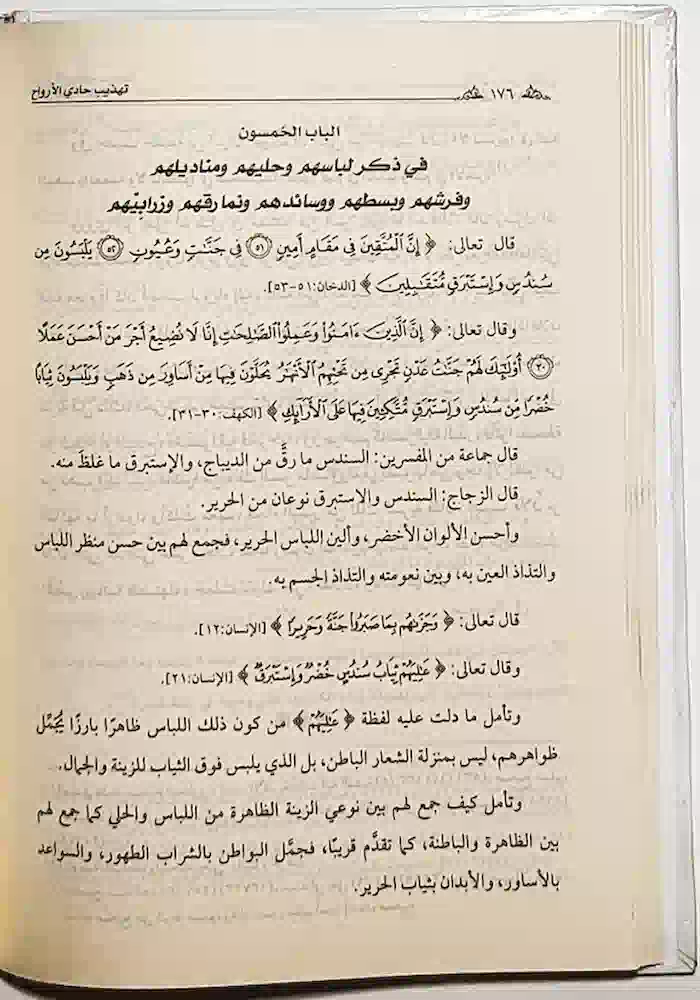 ١٧٦ تهذيب حادي الأرواح
الباب الخمسون
في ذكر لباسهم وحليهم ومناديلهم
وفرشهم وبسطهم ووسائدهم ونمارقهم وزرابِيّهم
قال تعالى: ﴿ إِنَّ ٱلْمُتَّقِينَ فِى مَقَامٍ أَمِينٍ ۝٥١ فِى جَنَّـٰتٍ وَعُيُونٍ ۝٥٢ يَلْبَسُونَ مِن
سُندُسٍ وَإِسْتَبْرَقٍ مُّتَقَـٰبِلِينَ ﴾ [الدخان:٥١-٥٣].
وقال تعالى: ﴿ إِنَّ ٱلَّذِينَ ءَامَنُوا۟ وَعَمِلُوا۟ ٱلصَّـٰلِحَـٰتِ إِنَّا لَا نُضِيعُ أَجْرَ مَنْ أَحْسَنَ عَمَلًا
۝٣٠ أُو۟لَـٰٓئِكَ لَهُمْ جَنَّـٰتُ عَدْنٍ تَجْرِى مِن تَحْتِهِمُ ٱلْأَنْهَـٰرُ يُحَلَّوْنَ فِيهَا مِنْ أَسَاوِرَ مِن ذَهَبٍ وَيَلْبَسُونَ ثِيَابًا
خُضْرًا مِّن سُندُسٍ وَإِسْتَبْرَقٍ مُّتَّكِـِٔينَ فِيهَا عَلَى ٱلْأَرَآئِكِ ﴾ [الكهف:٣٠-٣١].
قال جماعة من المفسرين: السندس ما رقَّ من الديباج، والإستبرق ما غلظَ منه.
قال الزجاج: السندس والاستبرق نوعان من الحرير.
وأحسن الألوان الأخضر، وألين اللباس الحرير، فجمع لهم بين حسن منظر اللباس
والتذاذ العين به، وبين نعومته والتذاذ الجسم به.
قال تعالى: ﴿ وَجَزَىٰهُم بِمَا صَبَرُوا۟ جَنَّةً وَحَرِيرًا ﴾ [الإنسان:١٢].
وقال تعالى: ﴿ عَـٰلِيَهُمْ ثِيَابُ سُندُسٍ خُضْرٌ وَإِسْتَبْرَقٌ ﴾ [الإنسان:٢١].
وتأمل ما دلت عليه لفظة ﴿ عَـٰلِيَهُمْ ﴾ من كون ذلك اللباس ظاهرًا بارزًا يُجَمِّل
ظواهرهم، ليس بمنزلة الشعار الباطن، بل الذي يلبس فوق الثياب للزينة والجمال.
وتأمل كيف جمع لهم بين نوعي الزينة الظاهرة من اللباس والحلي كما جمع لهم
بين الظاهرة والباطنة، كما تقدَّم قريبًا، فجمَّل البواطن بالشراب الطهور، والسواعد
بالأساور، والأبدان بثياب الحرير.